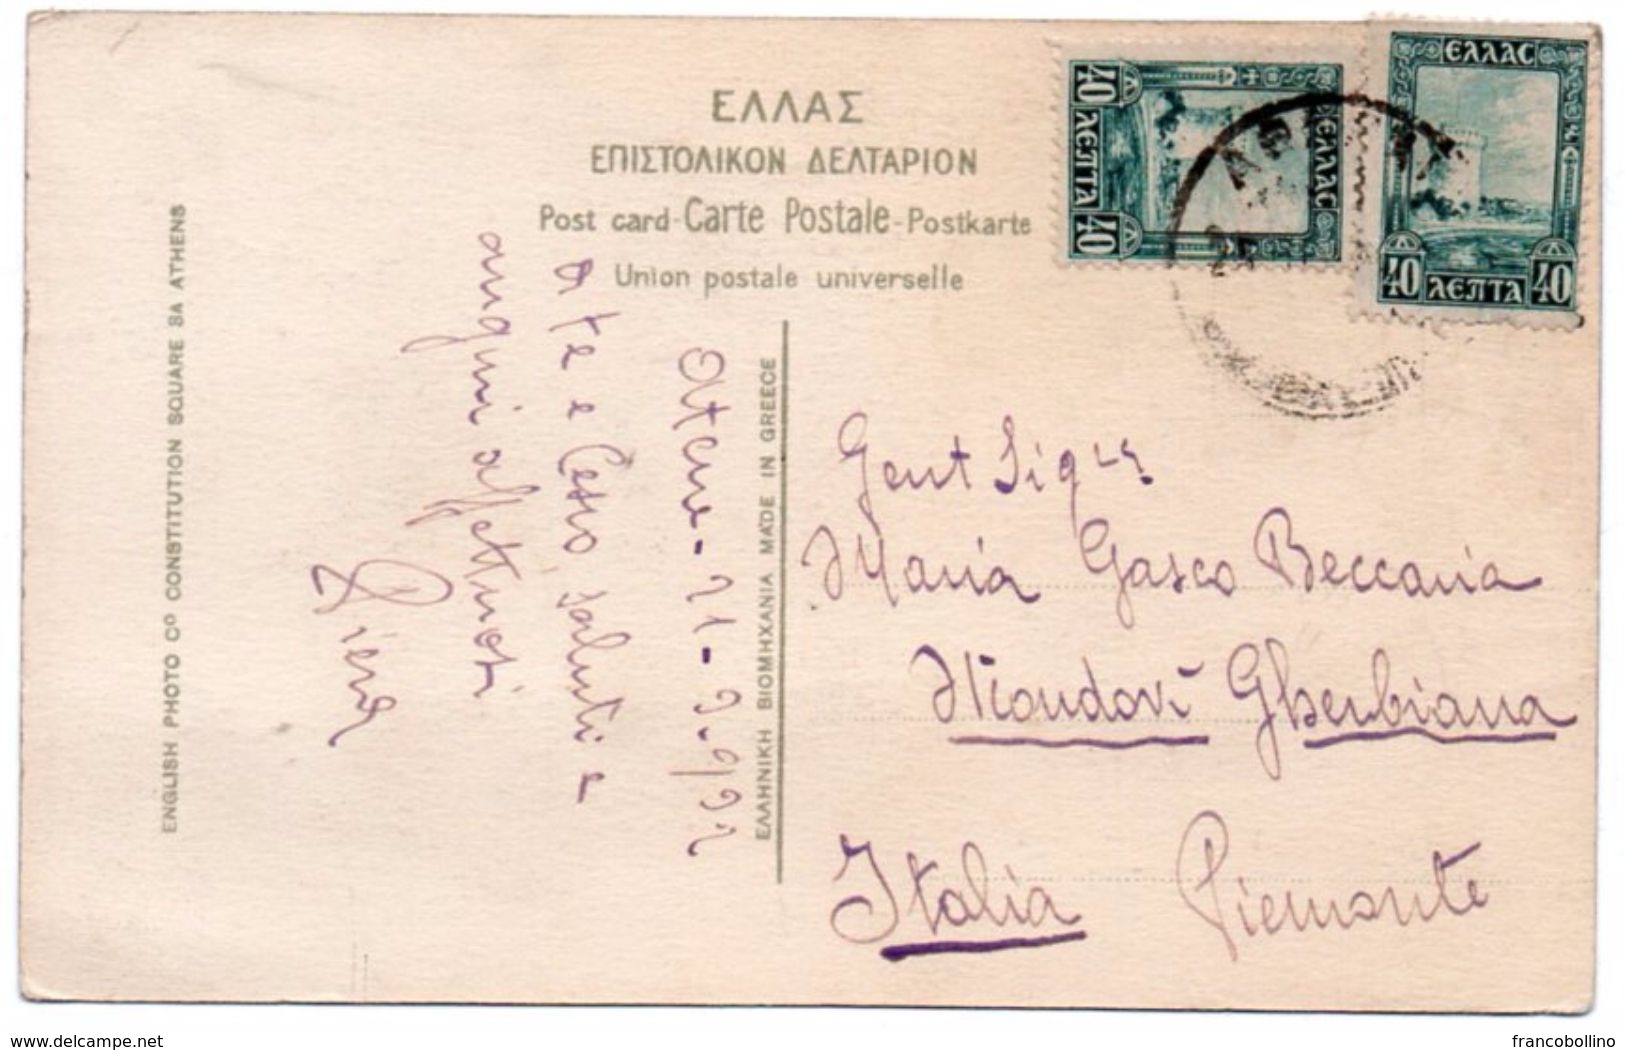 ΕΛΛΑΣ
ΕΠΙΣΤΟΛΙΚΟΝ ΔΕΛΤΑΡΙΟΝ
Post card - Carte Postale - Postkarte
Union postale universelle
ENGLISH PHOTO Cº CONSTITUTION SQUARE 8A ATHENS
ΕΛΛΗΝΙΚΗ ΒΙΟΜΗΧΑΝΙΑ MADE IN GREECE
40 ΛΕΠΤΑ 40
ΕΛΛΑΣ
ΕΛΛΑΣ
40 ΛΕΠΤΑ 40
Atene - 21 - 2.932
a te e saluti e
auguri affettuosi
Piera
Gent Sigra
Maria Gasco Beccaria
Mondovì Gherbiana
Italia Piemonte
delcampe.net
francobollino